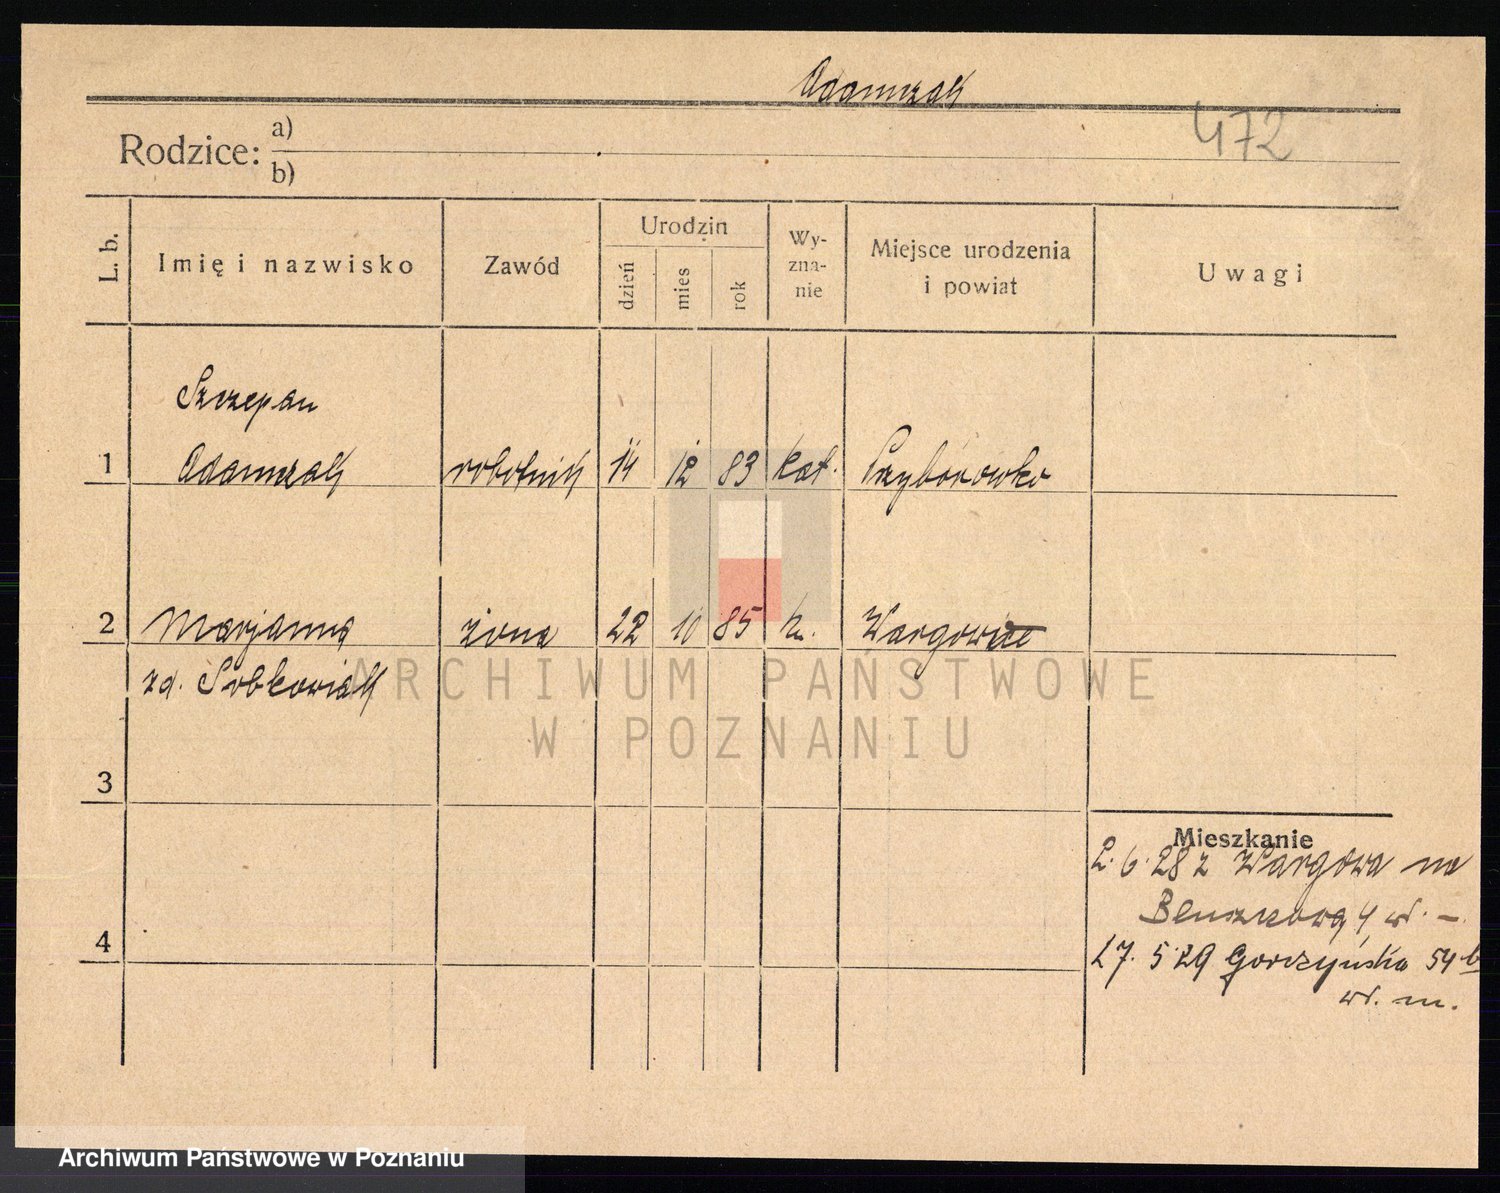 Adamczak
472
Rodzice: a)
b)
L. b.
Imię i nazwisko
Zawód
Urodzin
dzień
mies
rok
Wy-
zna-
nie
Miejsce urodzenia
i powiat
Uwagi
Szczepan
1 Adamczak robotnik 14 12 83 kat. Przyborowko
2 Marjanna żona 22 10 85 k.
zd. Sobkowiak
ARCHIWUM PAŃSTWOWE
W POZNANIU
3
Mieszkanie
2. 6. 28 z Wargowa na
4 wł. –.
4
17. 5 29 Gorczyńska 54 b
wł. m.
Archiwum Państwowe w Poznaniu